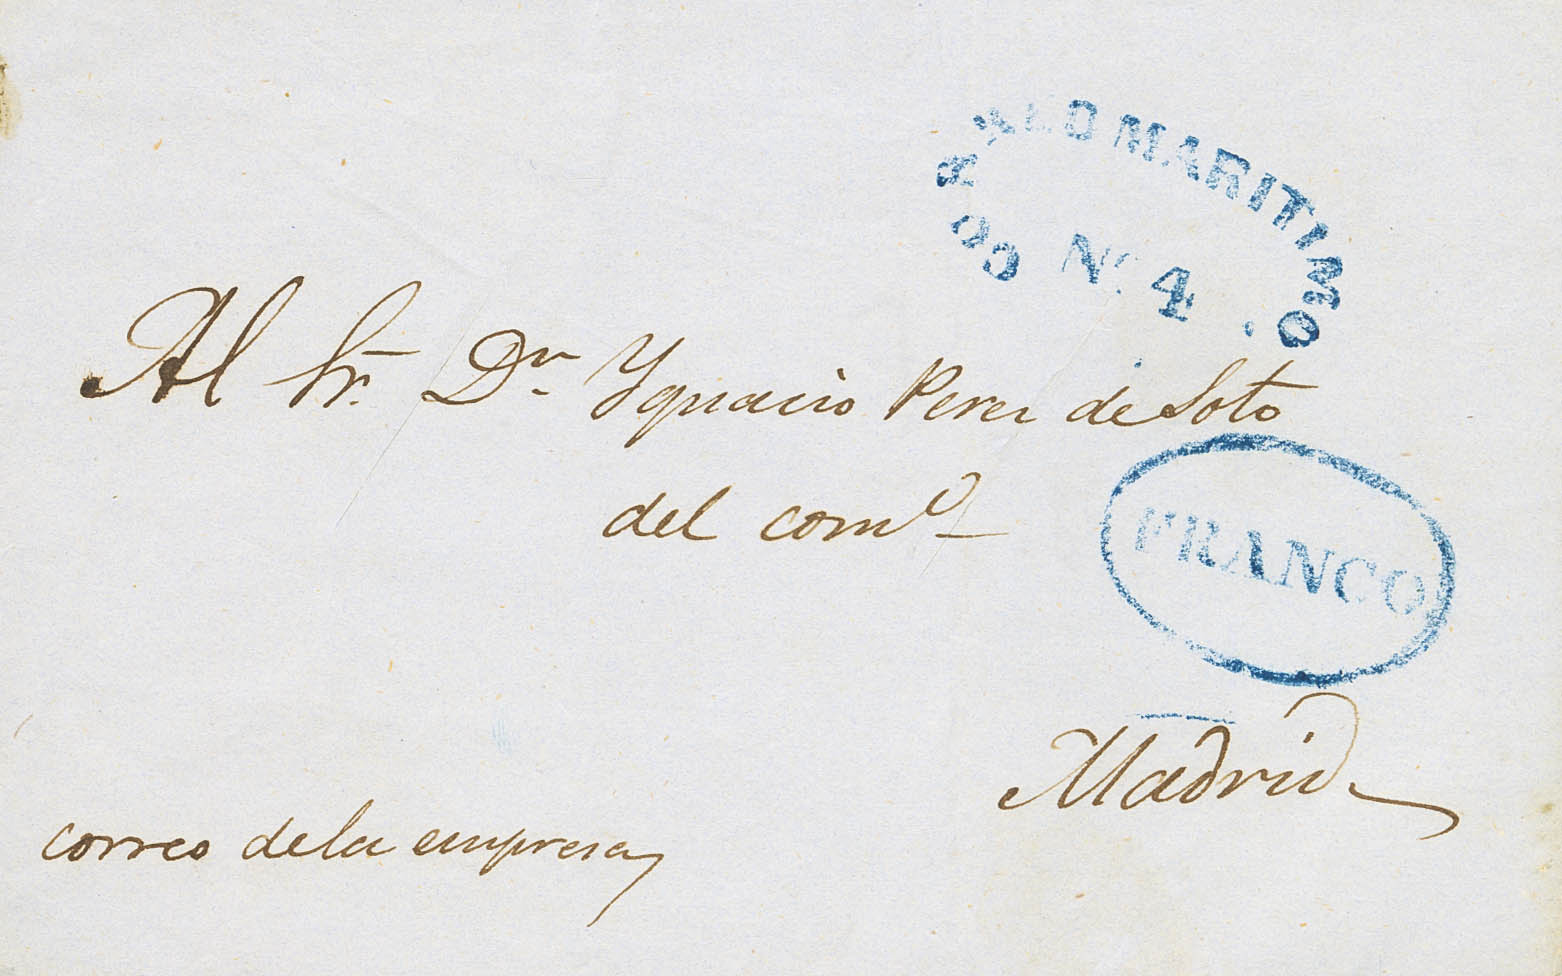 CORREO MARITIMO
Nº. 4
Al Sr. Dn. Ygnacio Perez de Soto
del comº
FRANCO
Madrid
correo dela empresa